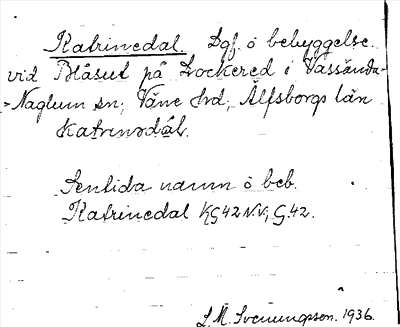 Katrinedal. Lgf. o bebyggelse.
vid Blåsut på Lockered i Vassända-
-Naglum sn; Väne hd; Älfsborgs län
Katrinedal.
Sentida namn o beb.
Katrinedal KG42 N.V; G.42.
L. M. Svenungsson. 1936.